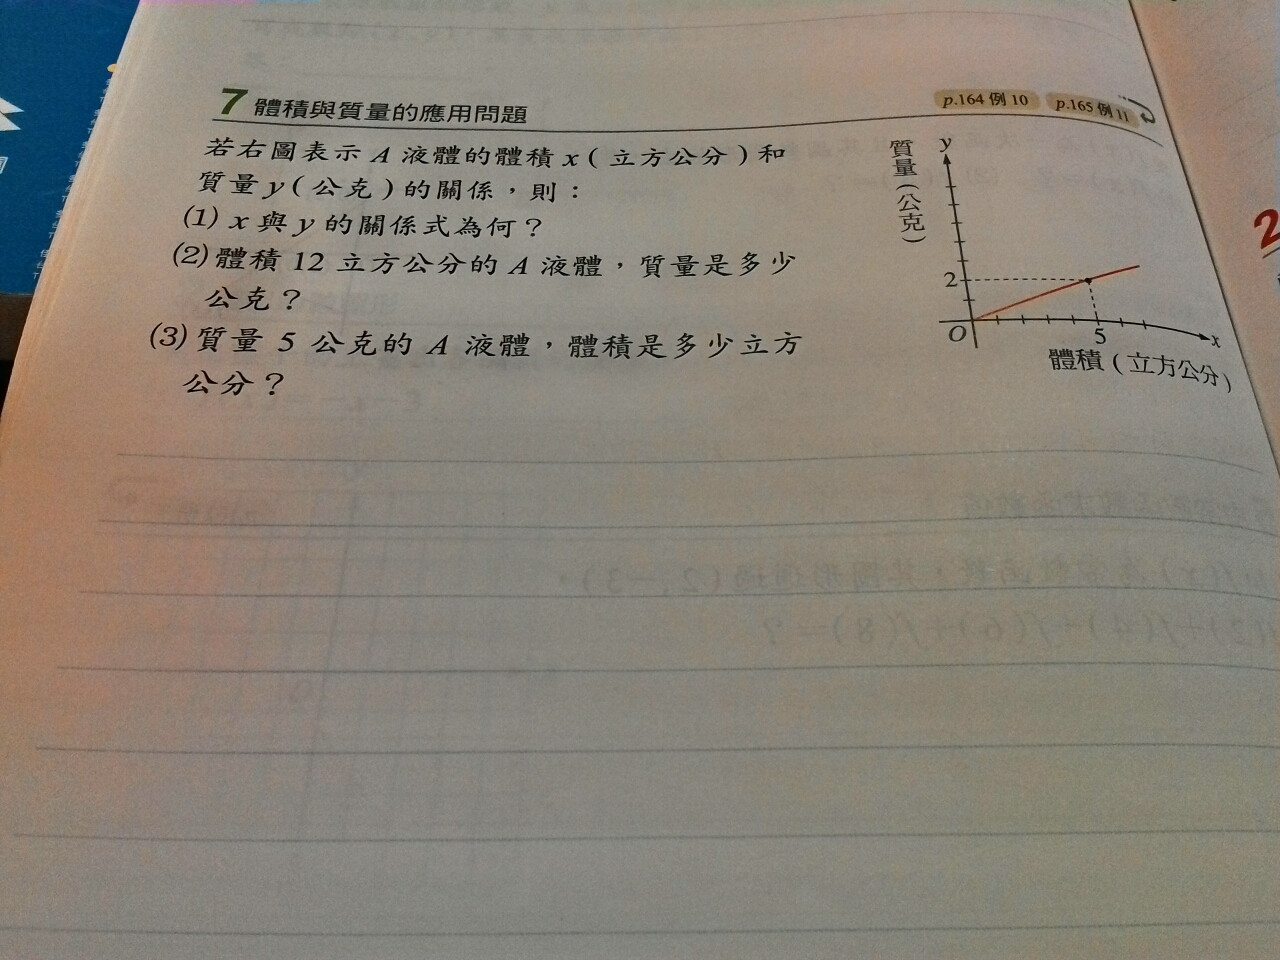 7 體積與質量的應用問題
p.164 例 10 p.165 例 11
若右圖表示 A 液體的體積 x ( 立方公分 ) 和
質量 y ( 公克 ) 的關係,則:
(1) x 與 y 的關係式為何?
(2) 體積 12 立方公分的 A 液體,質量是多少
公克?
(3) 質量 5 公克的 A 液體,體積是多少立方
公分?
質量(公克)
y
2
O
5
x
體積 ( 立方公分 )
2